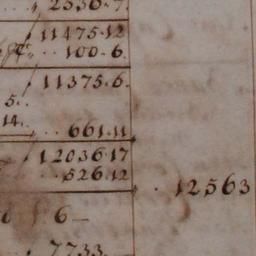 2336.7.
11475.12
100.6.
11375.6.
5..
14.
661.11
12036.17
526.12
12563
6—
7733